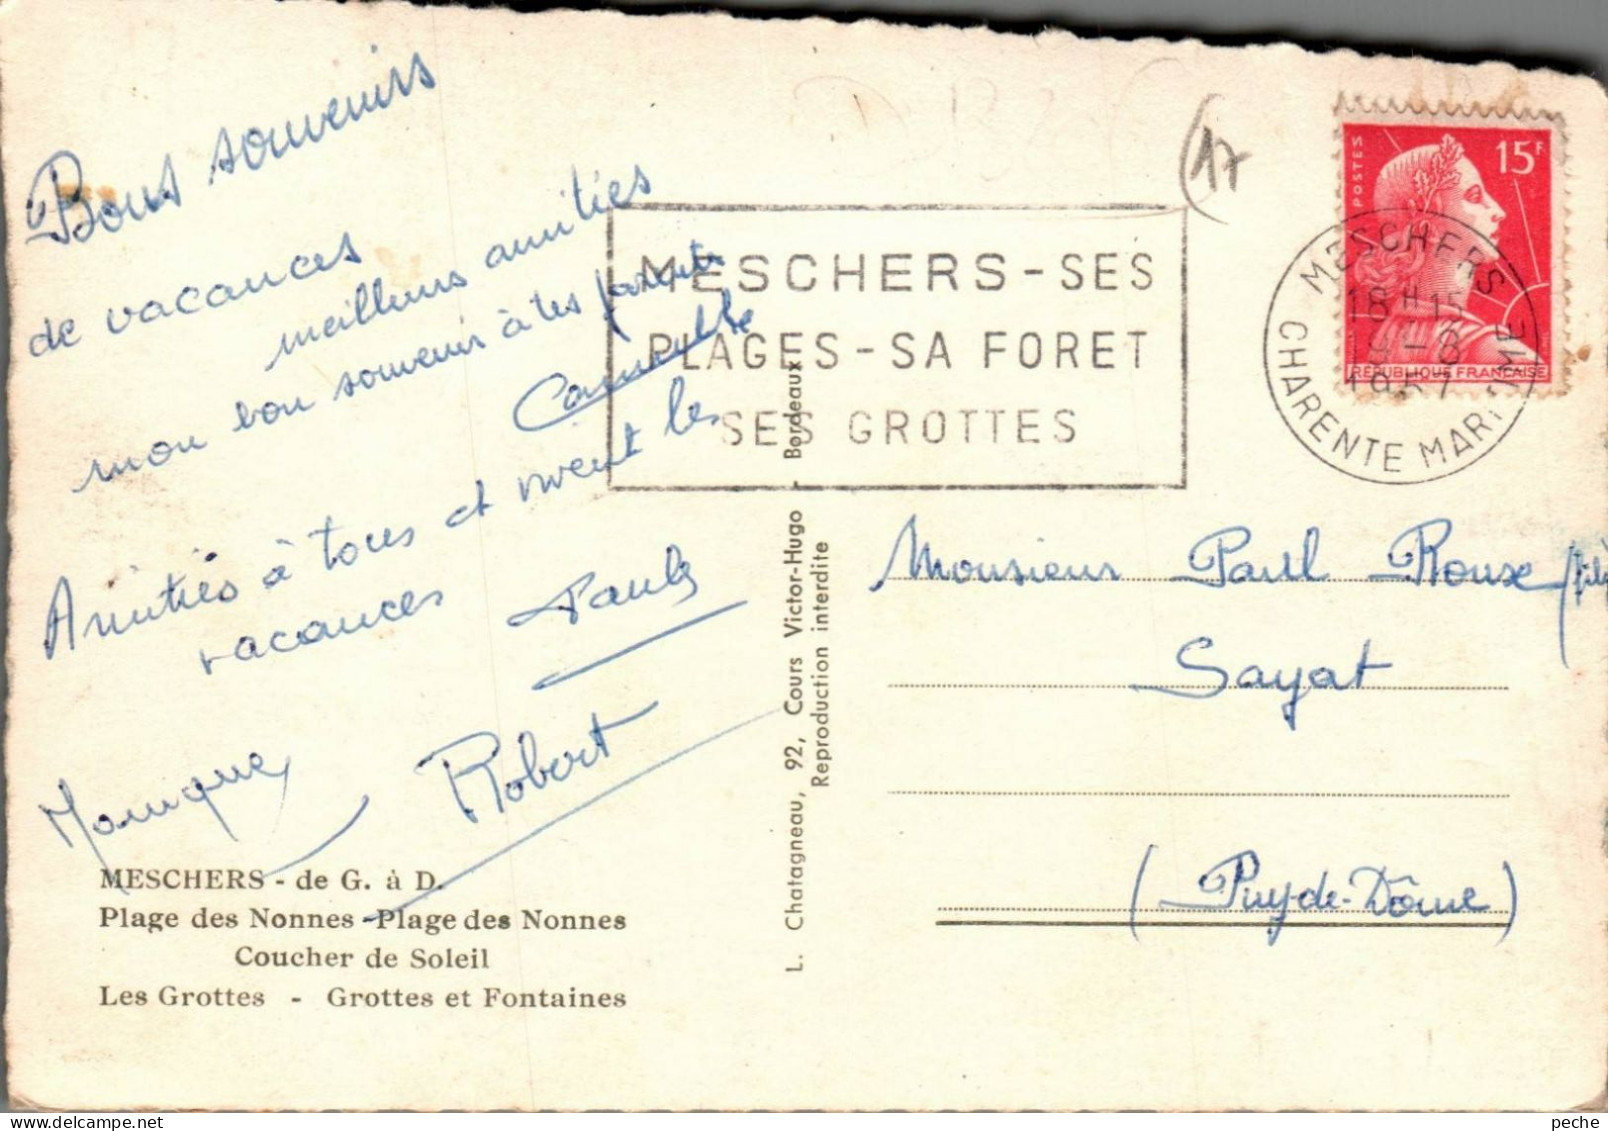 Bons souvenirs
de vacances
meilleurs amitiés
mon bon souvenir à tes parents
Camille
Amitiés à tous et vivent les
vacances
Paule
Monique
Robert
MESCHERS - de G. à D.
Plage des Nonnes - Plage des Nonnes
Coucher de Soleil
Les Grottes - Grottes et Fontaines
L. Chatagneau, 92, Cours Victor-Hugo - Bordeaux
Reproduction interdite
MESCHERS - SES
PLAGES - SA FORET
SES GROTTES
(17
POSTES
15F
RÉPUBLIQUE FRANÇAISE
MESCHERS
18 H 15
-8
1957
CHARENTE MARITIME
Monsieur Paul Roux (fils
Sayat
(Puy-de-Dôme)
peche